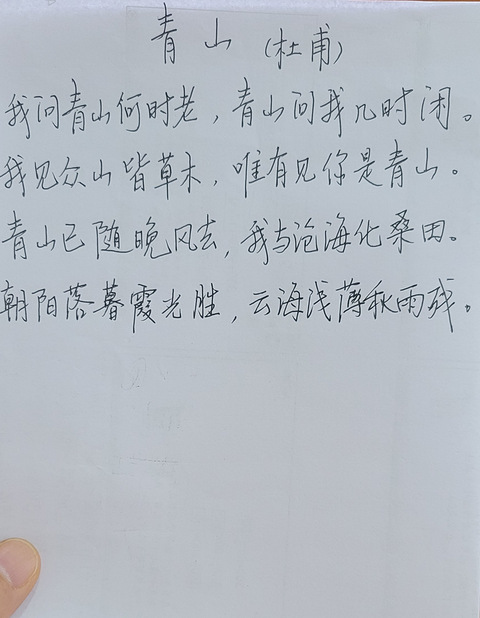 青山（杜甫）
我问青山何时老，青山问我几时闲。
我见众山皆草木，唯有见你是青山。
青山已随晚风去，我与沧海化桑田。
朝阳落暮霞光胜，云海浅薄秋雨残。